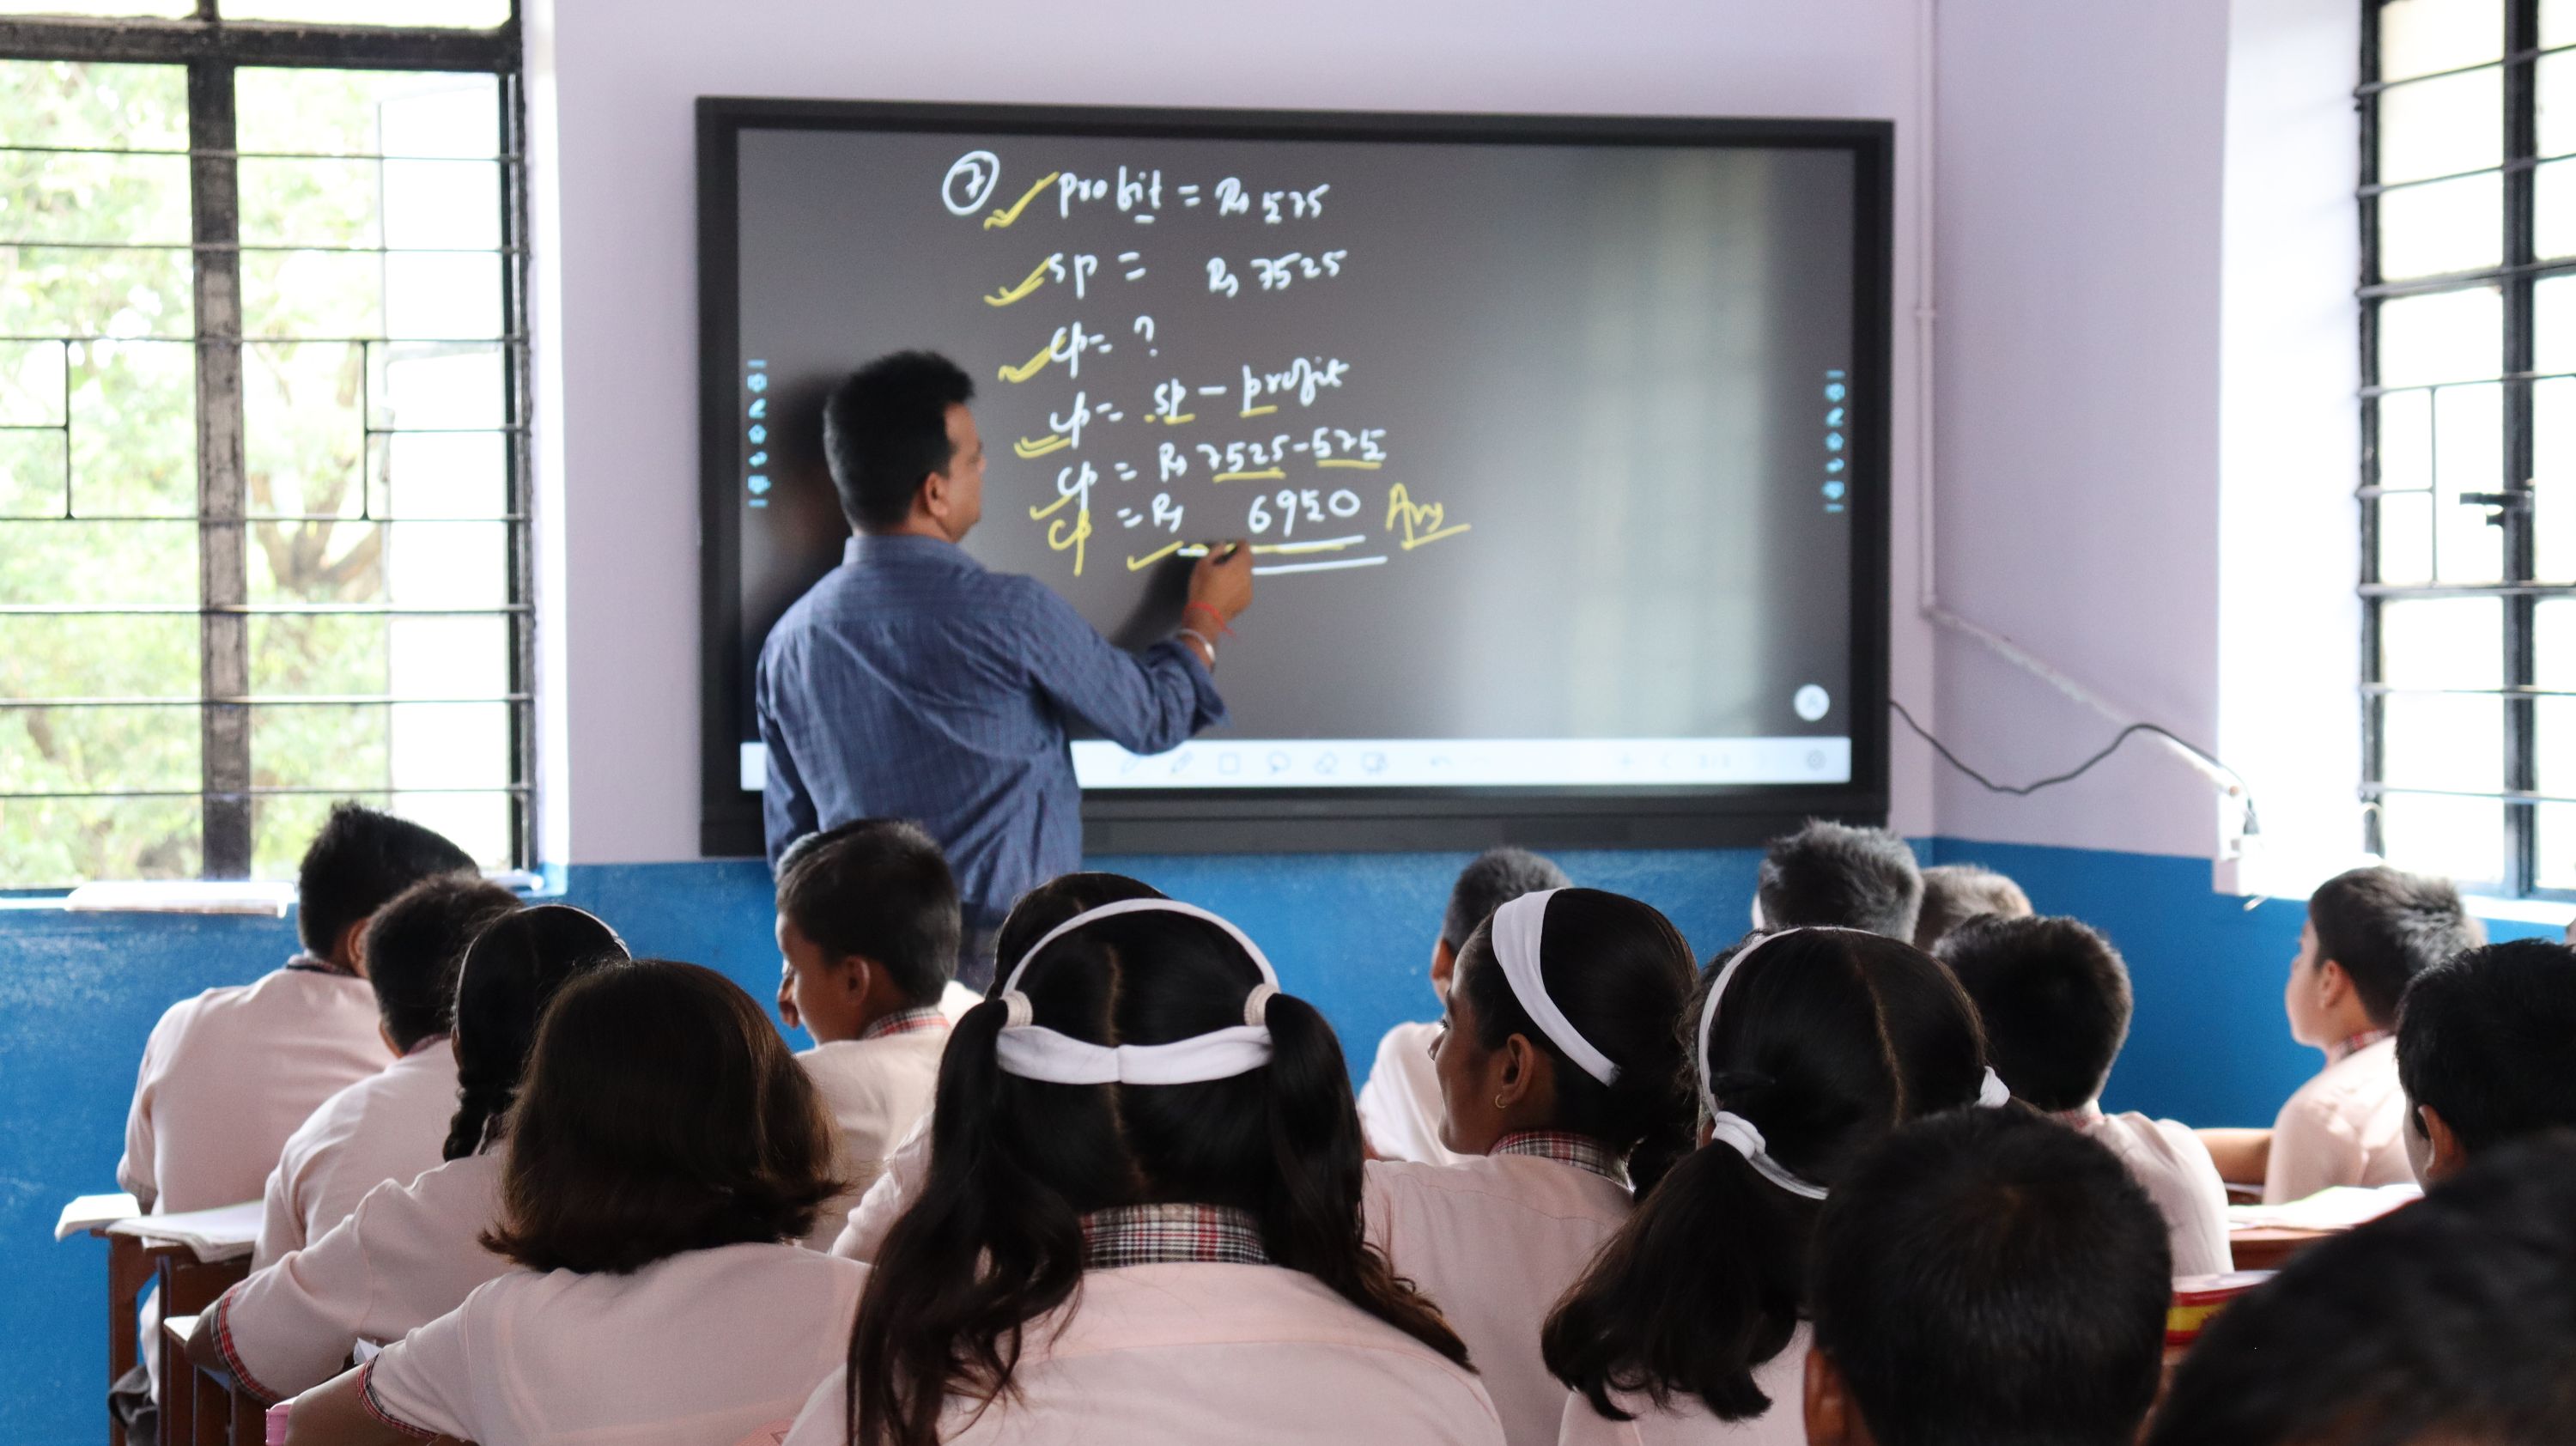 7 profit = Rs 575
SP = Rs 7525
CP = ?
CP = SP - profit
CP = Rs 7525-575
CP = Rs 6950 Ans